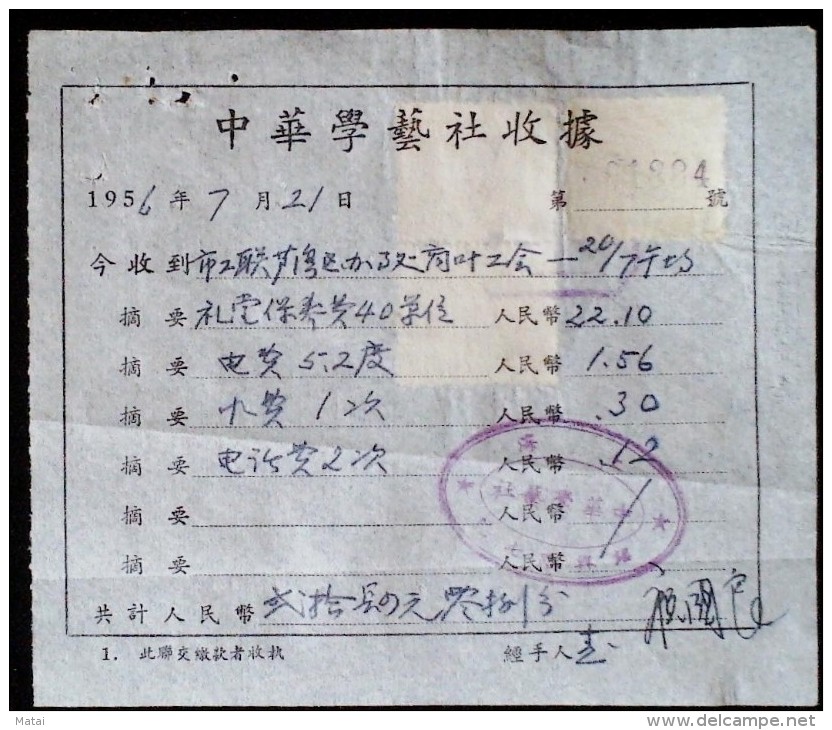 中華學藝社收據
1956年7月21日 第 號
今收到市工联 办事处 工会—20/7午场
摘要 礼堂保养费40单位 人民幣 22.10
摘要 电费 5.2度 人民幣 1.56
摘要 水费 1次 人民幣 .30
摘要 电话费2次 人民幣 .12
摘要 人民幣
摘要 人民幣
共計人民幣 弍拾 元零捌分
1. 此聯交繳款者收執 經手人
中華學藝社
Matai
delcampe.net